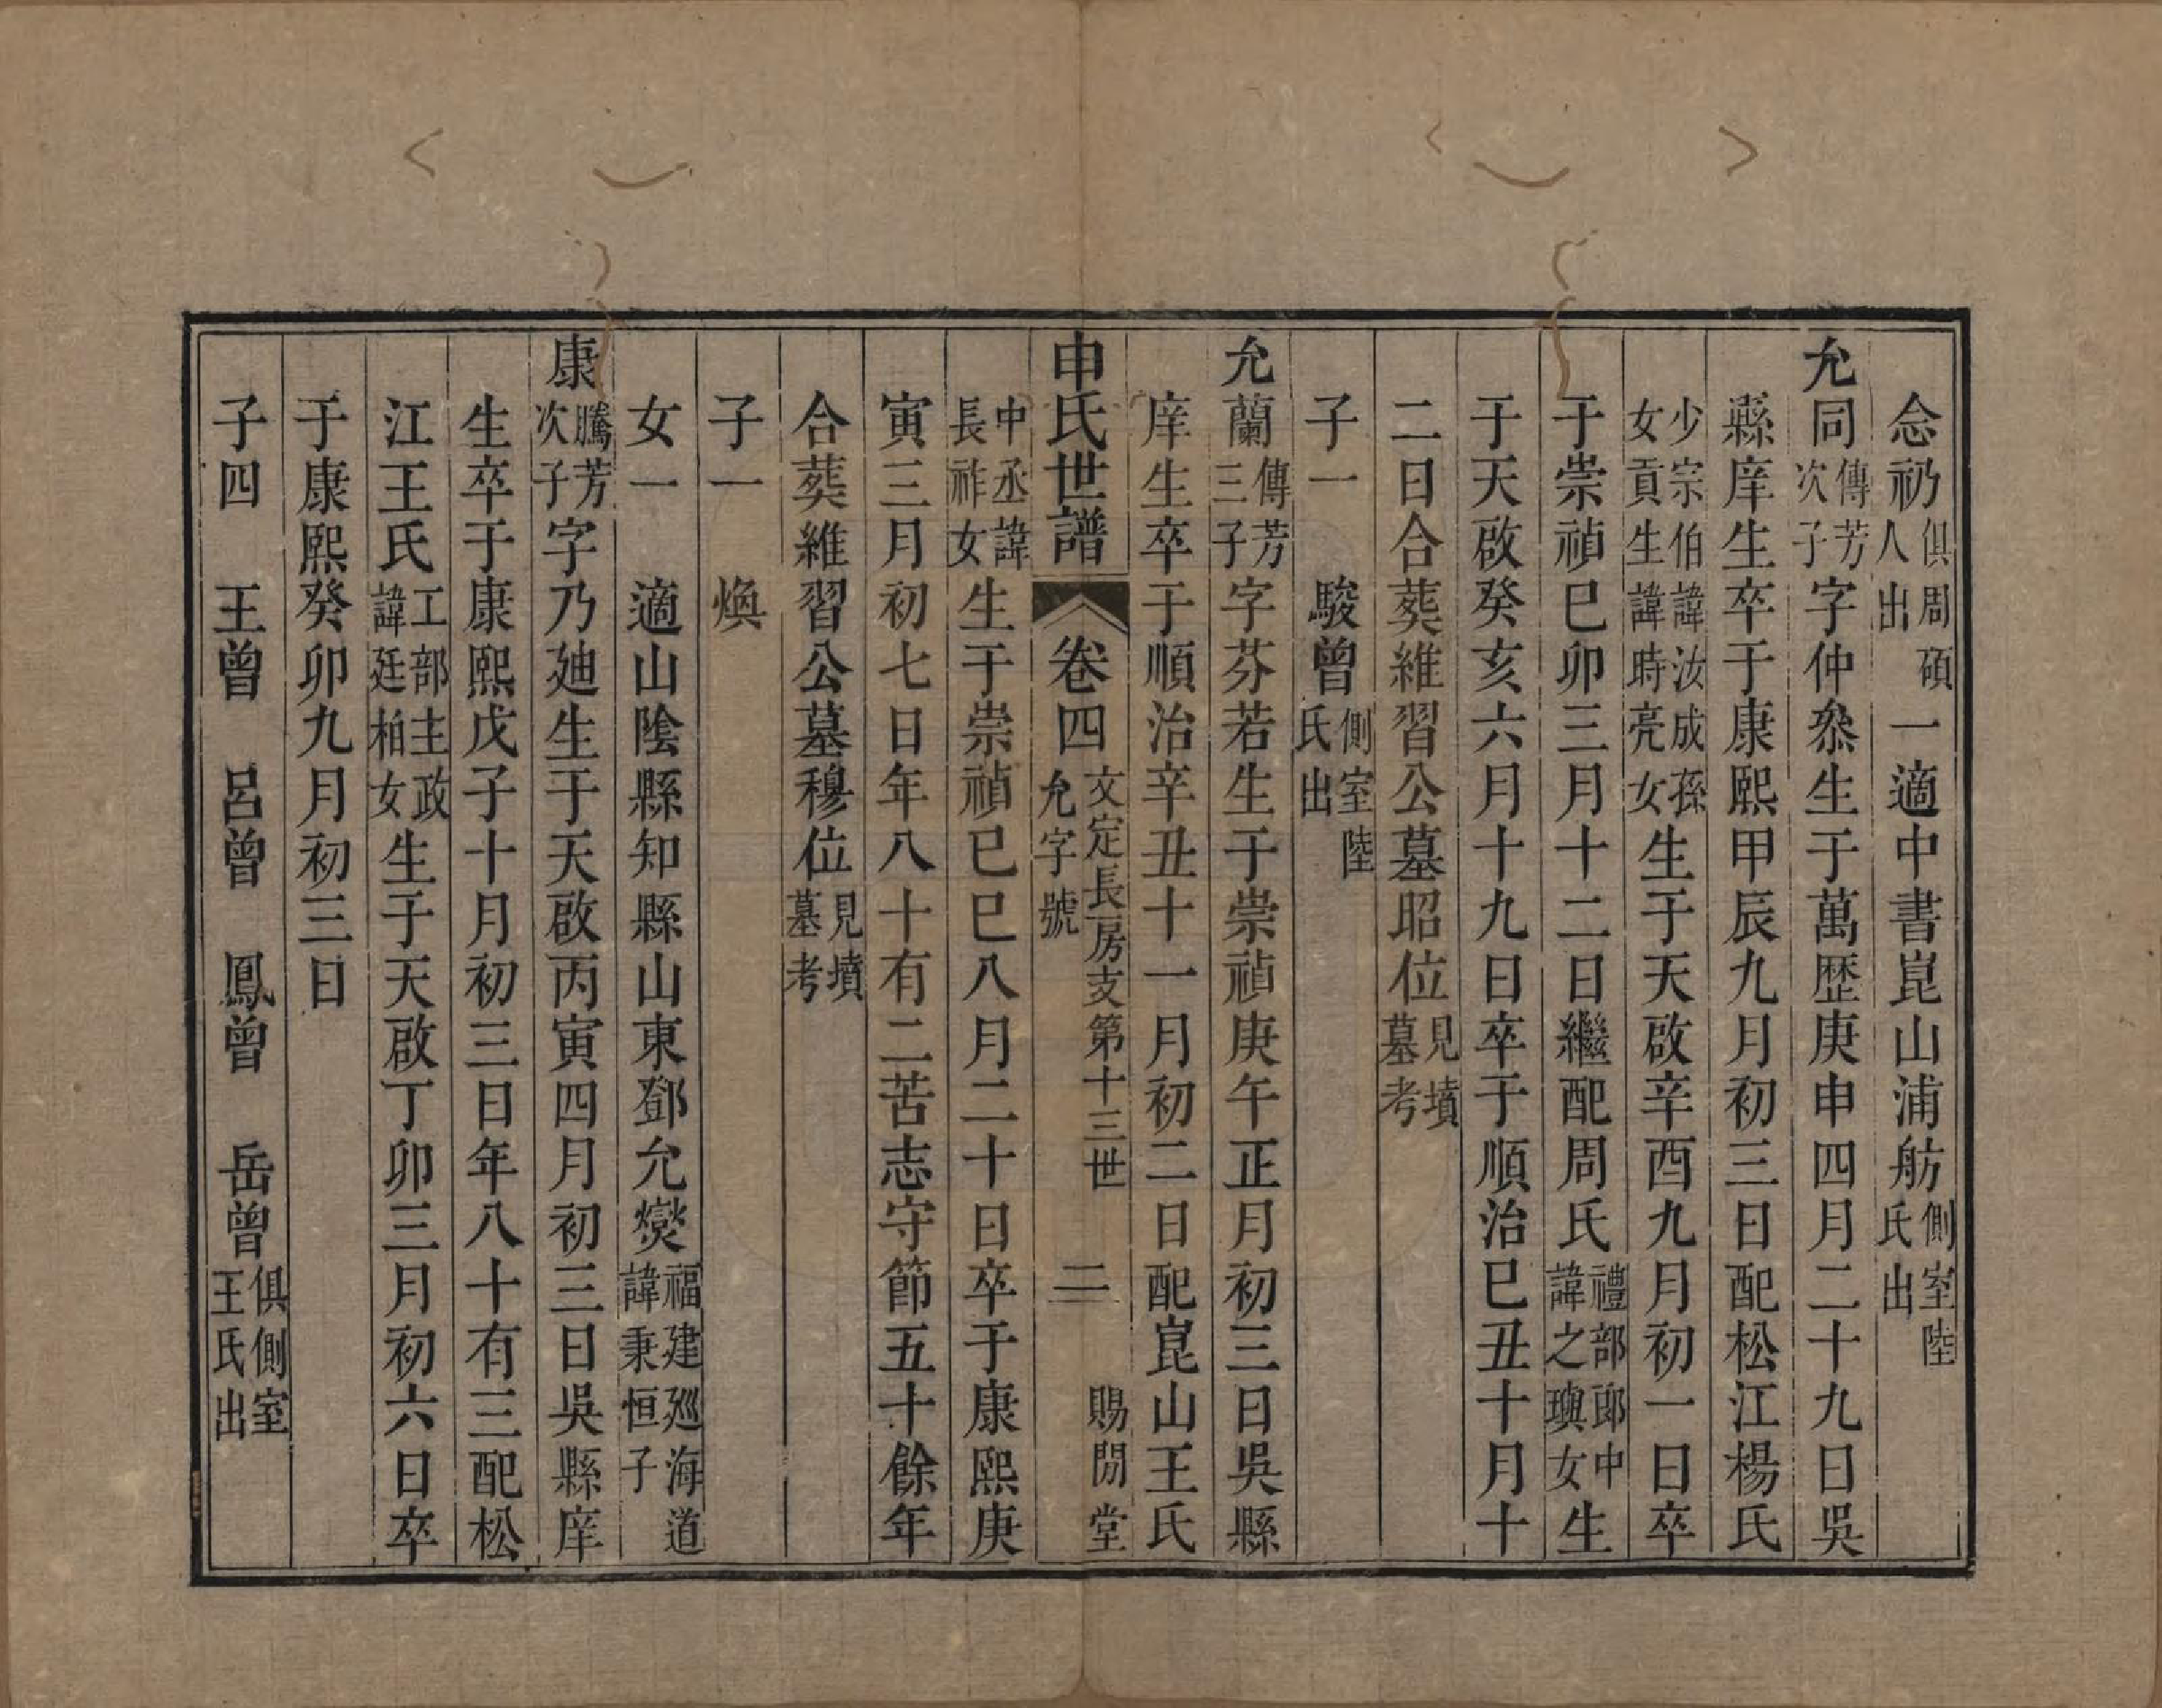 念礽俱周碩人出一適中書崑山浦舫側室陸氏出
允同傳芳次子字仲叅生于萬歷庚申四月二十九日吳
縣庠生卒于康熙甲辰九月初三日配松江楊氏
少宗伯諱汝成孫女貢生諱時亮女生于天啟辛酉九月初一日卒
于崇禎巳卯三月十二日繼配周氏禮部郎中諱之璵女生
于天啟癸亥六月十九日卒于順治巳丑十月十
二日合葬維習公墓昭位見墳墓考
子一 駿曾側室陸氏出
允蘭傳芳三子字芬若生于崇禎庚午正月初三日吳縣
庠生卒于順治辛丑十一月初二日配崑山王氏
申氏世譜 卷四 文定長房支第十三世 允字號 二 賜閒堂
中丞諱長祚女生于崇禎巳巳八月二十日卒于康熙庚
寅三月初七日年八十有二苦志守節五十餘年
合葬維習公墓穆位見墳墓考
子一 煥
女一 適山陰縣知縣山東鄧允燮福建廵海道諱秉恒子
康騰芳次子字乃廸生于天啟丙寅四月初三日吳縣庠
生卒于康熙戊子十月初三日年八十有三配松
江王氏工部主政諱廷柏女生于天啟丁卯三月初六日卒
于康熙癸卯九月初三日
子四 王曾 呂曾 鳳曾 岳曾俱側室王氏出